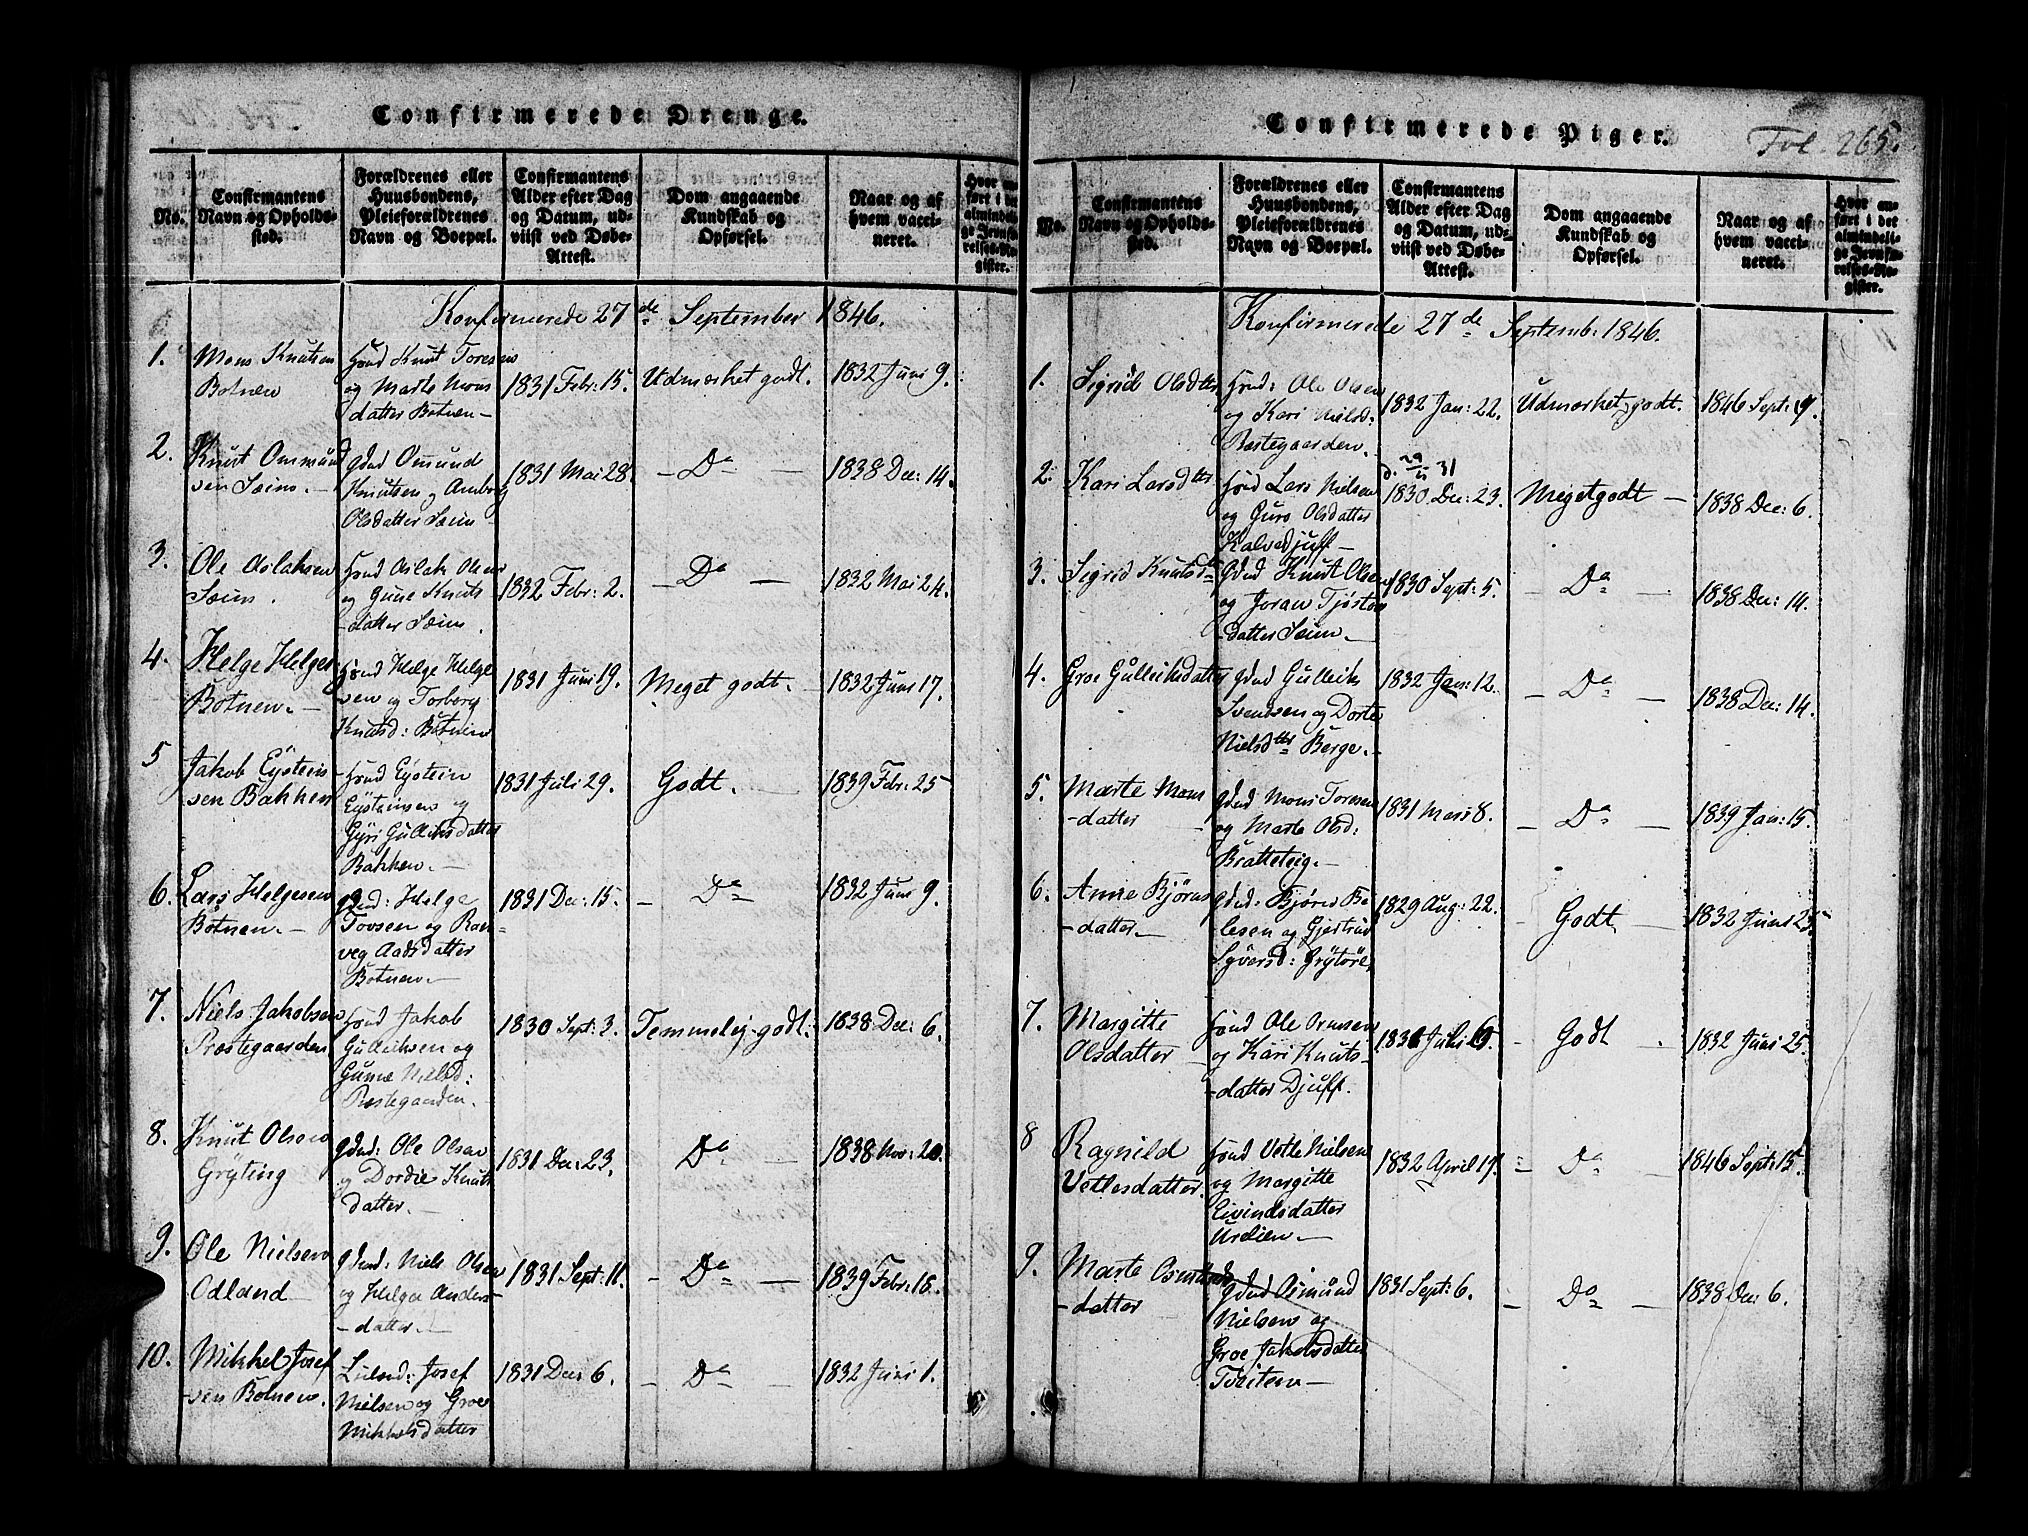 Confirmerede Drenge.
No.
Confirmantens
Navn og Opholds-
sted.
Forældrenes eller
Huusbondens,
Pleieforældrenes
Navn og Boepæl.
Confirmantens
Alder efter Dag
og Datum, ud-
viist ved Døbe-
Attest.
Dom angaaende
Kundskab og
Opførsel.
Naar og af
hvem vacci-
neret.
Hvor an-
ført i det
almindeli-
ge Jevnfø-
relses-Re-
gister.
Konfirmerede 27de September 1846.
1. Mons Knutsen
Botnen
Hsnd Knut Toresen
og Marte Mons
datter Botnen -
1831 Febr: 15.
Udmærket godt.
1832 Juni 9.
2. Knut Ommund
sen Sæim. -
Gdnd Omund
Knutsen og Amborg
Olsdatter Sæim -
1831 Mai 28.
- Do -
1838 Dec: 14.
3. Ole Aslaksen
Sæim.
Hsnd Aslak Olsen
og Gune Knuts
-datter Sæim.
1832 Febr: 2.
- Do -
1832 Mai 24.
4. Helge Helges.
Botnen. -
Hsnd Helge Helge
sen og Torborg
Knutsd: Botnen
1831 Juni 19.
Meget godt. -
1832 Juni 17.
5 Jakob Eÿstein
sen Bakken
Hsnd Eÿstein
Eÿsteinsen og
Gÿri Gulliksdatter
Bakken. -
1831 Juli 29.
Godt. -
1839 Febr: 25
6. Lars Helgesen
Botnen. -
Gdnd: Helge
Tovsen og Ran
veg Aadsdatter
Botnen. -
1831 Dec: 15.
- Do -
1832 Juni 9.
7. Niels Jakobsen
Præstegaarden
Hsnd Jakob
Gulliksen og
Gunne Nielsd:
Præstegaarden.
1830 Sept: 3.
Temmelig godt.
1838 Dec: 6.
8. Knut Olsen
Grÿting
Gdnd: Ole Olsen
og Dordie Knuts
datter. -
1831 Dec: 23.
Do -
1838 Nov: 20.
9. Ole Nielsen
Odland -
Gdnd: Niels Olsen
og Helga Anders-
-datter. -
1831 Sept: 11.
- Do -
1839 Febr: 18.
10. Mikkel Josef
-sen Botnen.
Josef
Nielsen og Groe
Mikkelsdatter
1831 Dec: 6.
- Do -
1832 Juni 1.
Confirmerede Piger.
Fol. 265.
No.
Confirmantens
Navn og Opholds-
sted.
Forældrenes eller
Huusbondens,
Pleieforældrenes
Navn og Boepæl.
Confirmantens
Alder efter Dag
og Datum, ud-
viist ved Døbe-
Attest.
Dom angaaende
Kundskab og
Opførsel.
Naar og af
hvem vacci-
neret.
Hvor an-
ført i det
almindeli-
ge Jevnfø-
relses-Re-
gister.
Konfirmerede 27de Septemb: 1846.
1. Sigrid Olsdtr
Hsnd: Ole Olsen
og Kari Nielsd:
Præstegaarden. -
1832 Jan: 22.
Udmærket godt.
1846 Sept: 9.
2. Kari Larsdtr
Hsnd Lars Nielsen
og Guro Olsdatter
Kalvedjuff -
1830 Dec: 23.
Meget godt -
1838 Dec: 6.
3. Sigrid Knutsdr
Gdnd Knut Olsen
og Joran Tjøstens
-datter Sæim. -
1830 Sept: 5.
- Do -
1838 Dec: 14.
4. Groe Gulliksdatter
Gdnd Gullik
Svendsen og Dorte
Nielsdtr Berge. -
1832 Jan: 12.
- Do -
1838 Dec: 14.
5. Marte Mons
-datter -
Gdnd Mons Toresen
og Marte Olsd:
Bratteteig. -
1831 8.
- Do -
1839 Jan: 15.
6. Anne Bjørns
-datter. -
Gdnd: Bjørn
og Gjertrud
Syversd: Grÿtøre.
1829 Aug: 22.
- Godt. -
1832 Juni 25
7. Margitte
Olsdatter
Hsnd Ole Ormsen
og Kari Knuts-
-datter Djuff.
1831 Juli 6.
- Godt.
1832 Juni 25.
8 Ragnild
Vetlesdatter.
Hsnd Vetle Nielsen
og Margitte
Eivindsdatter
Urdien. -
1832 April 17.
- Do -
1846 Sept: 15.
9. Marte Osmunds
-datter
Gdnd Osmund
Nielsen og
Groe Jakobsdatter
Tveiten -
1831 Sept: 6.
- Do -
1838 Dec: 6.